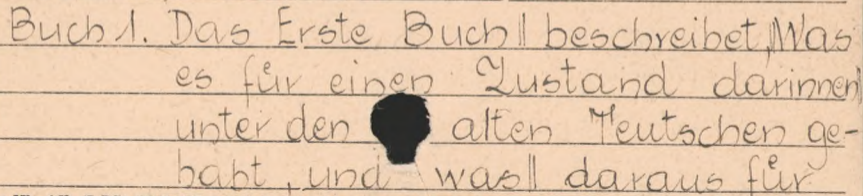 Buch 1. Das Erste Buch|| beschreibet, Was
es für einen Zustand darinnen
unter den alten Teutschen ge-
habt, und was|| daraus für